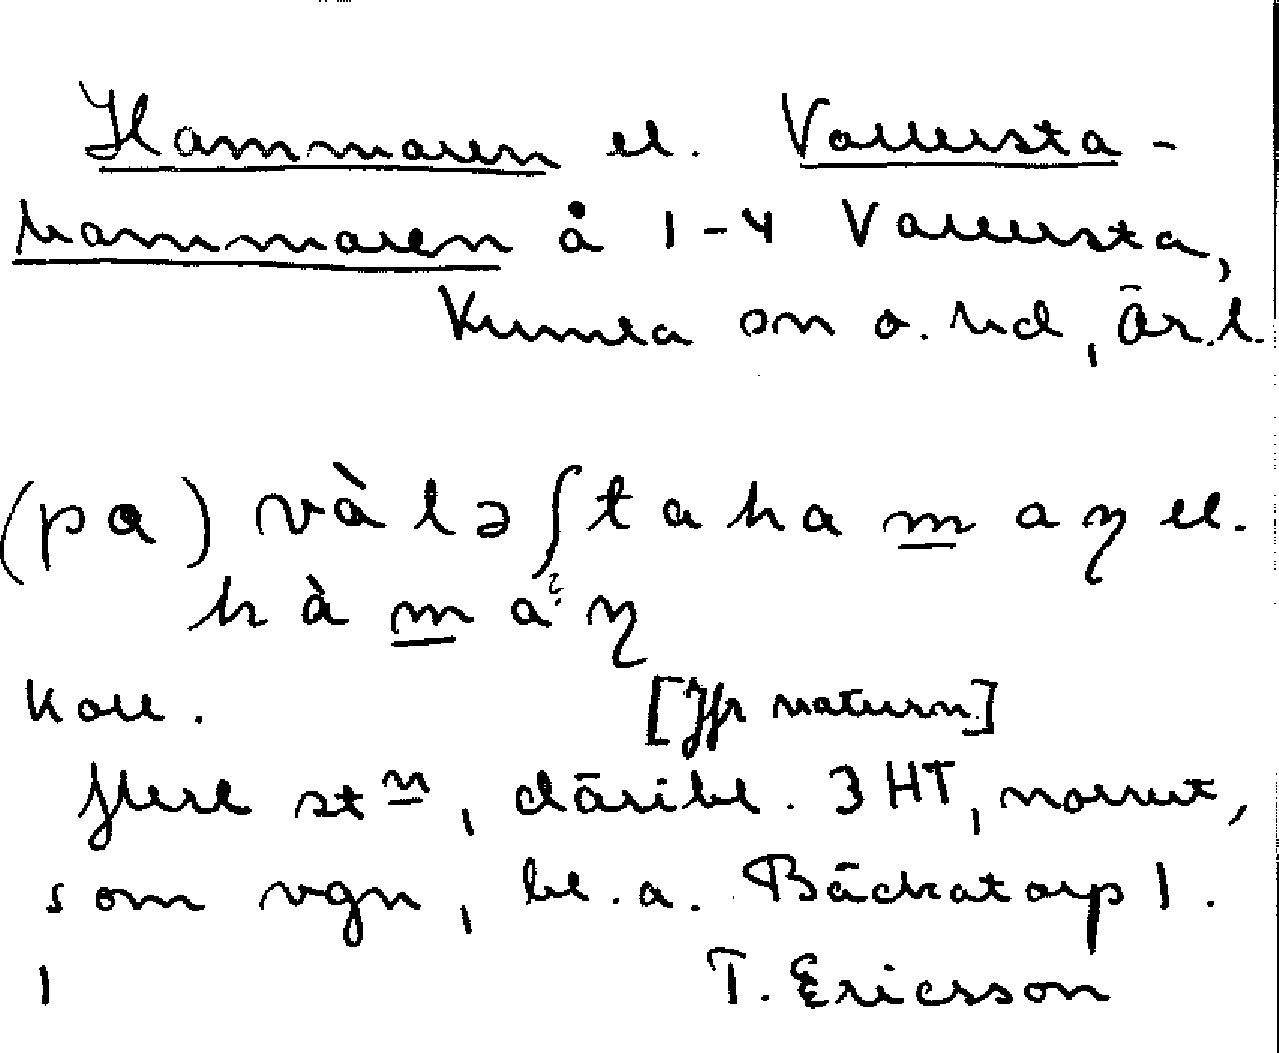 Hammaren el. Vallersta-
hammaren å 1-4 Vallersta,
Kumla sn o. hd, Ör.l.
(pa) vàləʃtahamaɳ el.
hàmaɳ
Koll. [Jfr naturn]
flere st n, däribl. 3 HT, norrut,
som vgn, bl.a. Bäckatorp 1.
1 T. Ericsson